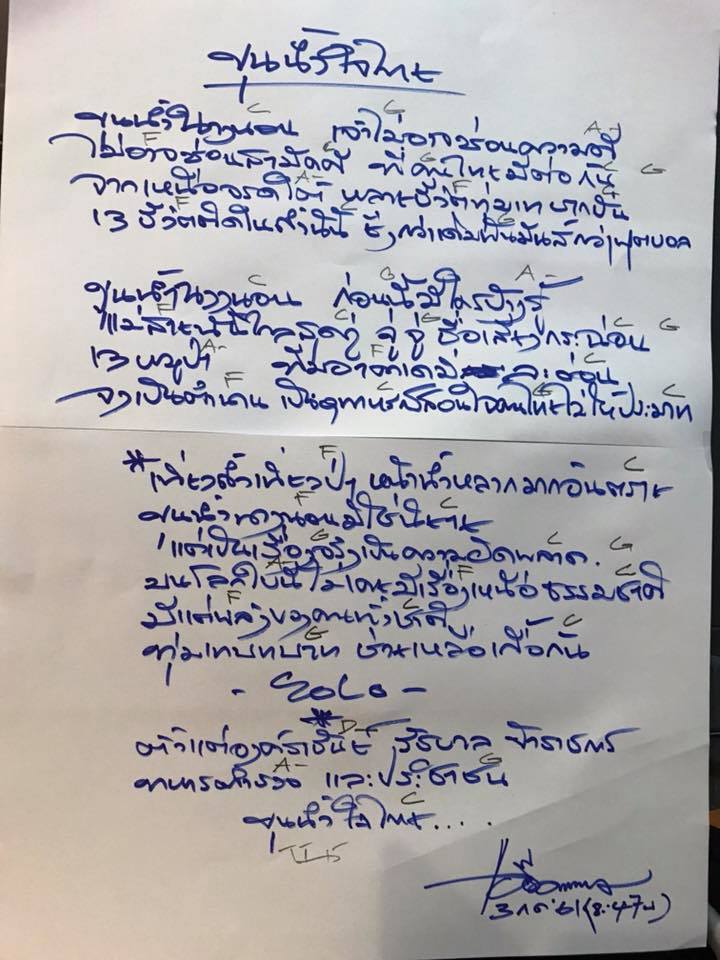 ขุนน้ำใจไทย
C G A-
ขุนน้ำนางนอน เจ้าไม่อาจซ่อนความดี
F C G
ไม่อาจซ่อนสามัคคี ที่คนไทยมีต่อกัน
A- F C
จากเหนือจรดใต้ หลายชีวิตทุ่มเทบากบั่น
F C G
13 ชีวิตติดในถ้ำนี้ ยิ่งกว่า มันส์กว่าฟุตบอล
C G A-
ขุนน้ำนางนอน ก่อนนี้มีใครบ้างรู้
F C G C
แม่สาย อยู่ จู่ จู่ ชื่อเสียงกระฉ่อน
A- F C
13 หมูป่า ทีมอาคาเดมี่ ละอ่อน
F C G C
จึงเป็นตำนาน เป็นอุทาหรณ์สอนใจคนไทยไม่ให้ประมาท
F C
*เที่ยวถ้ำเที่ยวป่า หน้าน้ำหลากมากอันตราย
F C
ขุนน้ำนางนอนมิใช่นิยาย
G C G
แต่เป็นเรื่องจริงเป็นความผิดพลาด.
A- F C
บนโลกใบนี้ไม่เคยมีเรื่องเหนือธรรมชาติ
F C
มีแต่พลังของคนทั้งชาติ
G C
ทุ่มเทบทบาท ช่วยเหลือเกื้อกัน
- SOLO -
*
D-
ตั้งแต่องค์ราชันย์ รัฐบาล ข้าราชการ
A- G
ทหารตำรวจ และประชาชน
C
ขุนน้ำใจไทย....
3 กค 61 (8:47น)